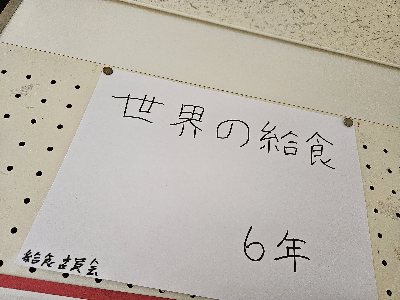 世界の給食
6年
給食委員会